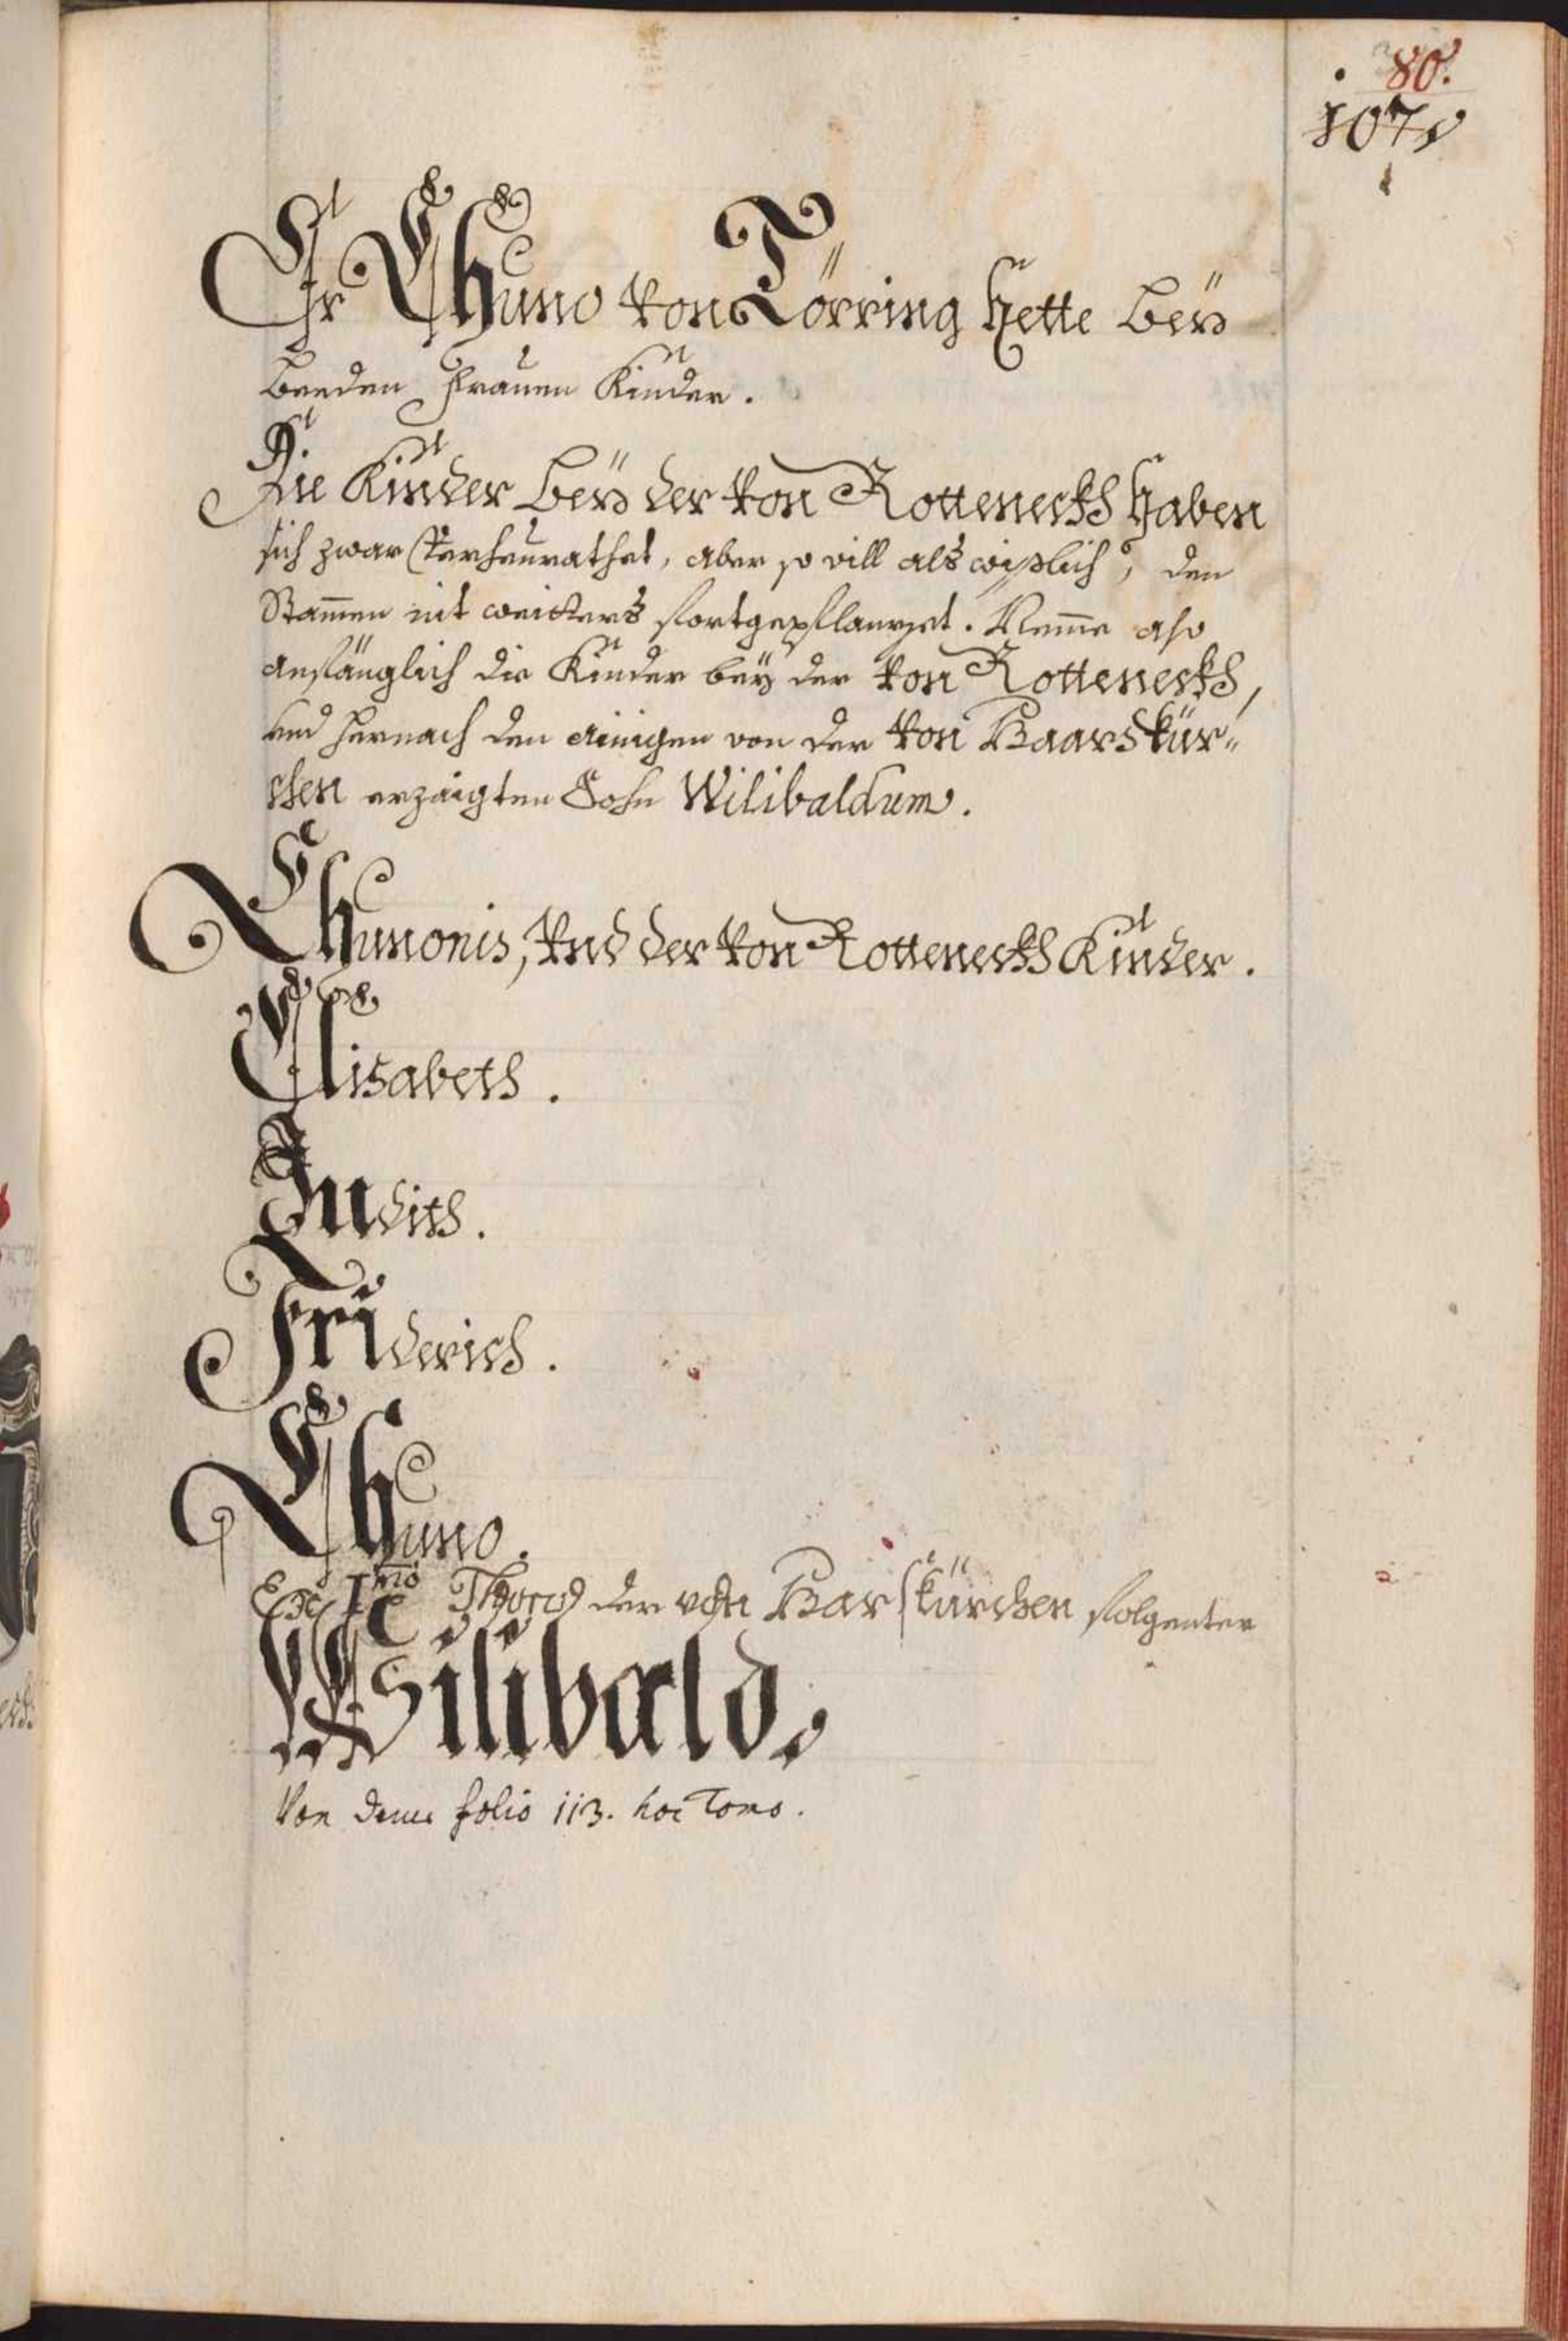 80.
107
Er Chuno von Törring hette beÿ
beeden Frauen Kinder.
Die Kinder beÿ der von Rotteneckh haben
sich zwar verheurathet, aber so vill als wisslich, den
Stam̄en nit weitters fortgepflannzet. Nem̄e also
anfänglich die Kinder beÿ der von Rotteneckh,
und hernach den ainigen von der von Baarskür-
chen erzaigten Sohn Wilibaldum.
Chunonis, Vnd der von Rotteneckh Kinder.
Elisabeth.
Judith.
Friderich.
Chuno.
Ex Imo Thoro der von Barskürchen folgenter
Wilibald.
Von deme folio 113. hoc Tomo.